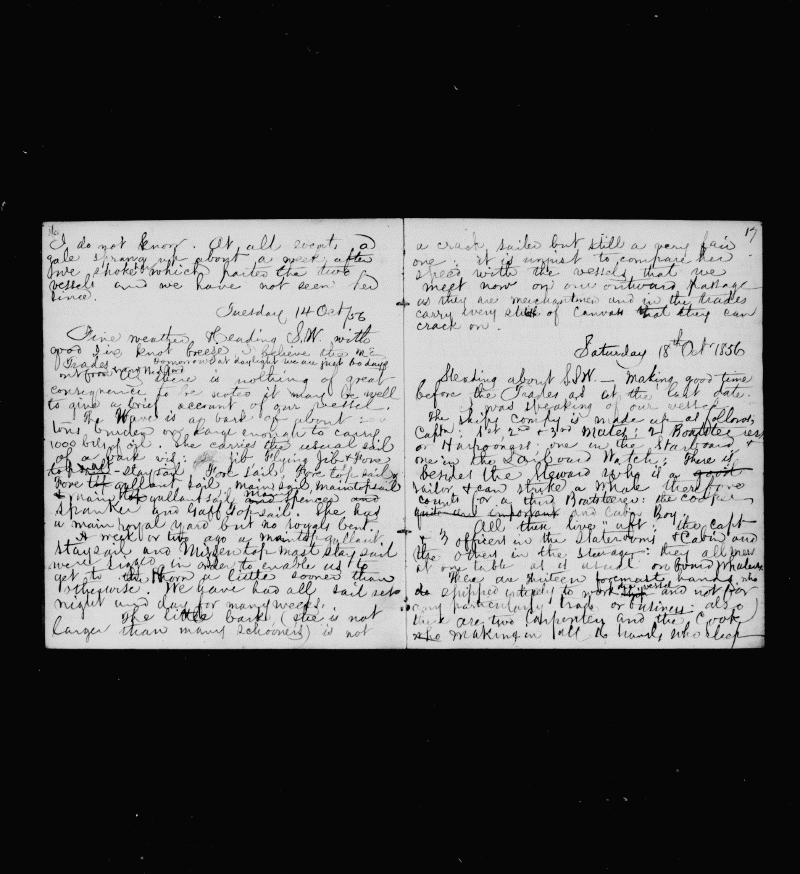 16
I do not know. At all events a
gale sprang up about a week after
we spoke which parted the two
vessels and we have not seen her
since.
Tuesday 14 Oct/56
Fine weather. Heading S.W. with
good six knot breeze I believe the
Trades. Tomorrow at daylight we are just 60 days
out from New Bedford
there is nothing of great
consequence to be noted it may be well
to give a brief account of our vessel.
The Wave is a bark of about
tons burden or large enough to carry
1000 bbls of oil. She carries the usual sail
of a bark viz: Jib Flying Jib & Fore
topmast-staysail Fore sail, Fore topsail &
Fore top gallant sail, main sail, maintopsail
& main top gallant sail and Spencer and
Spanker and Gaff Topsail. She has
a main royal yard but no royals bent.
A week or two ago a maintopgallant
staysail and Mizzen top mast stay sail
were rigged in order to enable us to
get to the Horn a little sooner than
otherwise. We have had all sail set
night and day for many weeks.
The little bark (she is not
larger than many schooners) is not
17
a crack sailer but still a very fair
one: it is unjust to compare her
speed with the vessels that we
meet now on our outward passage
as they are merchantmen and in the trades
carry every stitch of canvas that they can
crack on.
Saturday 18th Oct 1856
Steading about S.S.W. — Making good time
before the Trades as at the last date.
I was speaking of our vessel.
The ship's comp'y is made up as follows,
Capt: 1st 2nd & 3rd Mates; 2 Boatsteerers
or Harpooners: one in the Starboard &
one in the Larboard Watch; There is
besides the Steward who is a good
sailor & can strike a whale therefore
counts for a third Boatsteerer: the cooper
quit are important and Cabin Boy:
All these live "aft": the capt
& 3 officers in the staterooms & Cabin and
the others in the steerage: they all mess
at one table as is usual on board Whalers
There are thirteen foremast hands who
do shipped entirely to work the vessel and not for
any particular trade or business: also
there are two carpenters and the Cook
who making in all 26 hands, who sleep